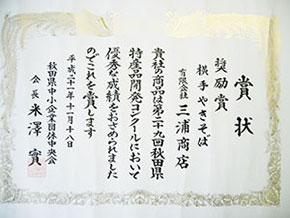 賞状
奨励賞
横手やきそば
有限会社 三浦商店
貴社の商品は第二十九回秋田県
特産品開発コンクールにおいて
優秀な成績をおさめられました
のでこれを賞します
平成二十一年十一月十八日
秋田県中小企業団体中央会
会長 米澤實